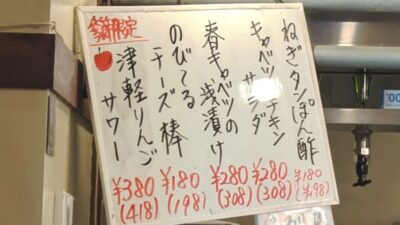 ねぎタンぽん酢
¥180
(¥198)
キャベツチキン
サラダ
¥280
(308)
春キャベツの
浅漬け
¥280
(308)
のびてる
チーズ棒
¥180
(198)
津軽りんご
サワー
¥380
(418)